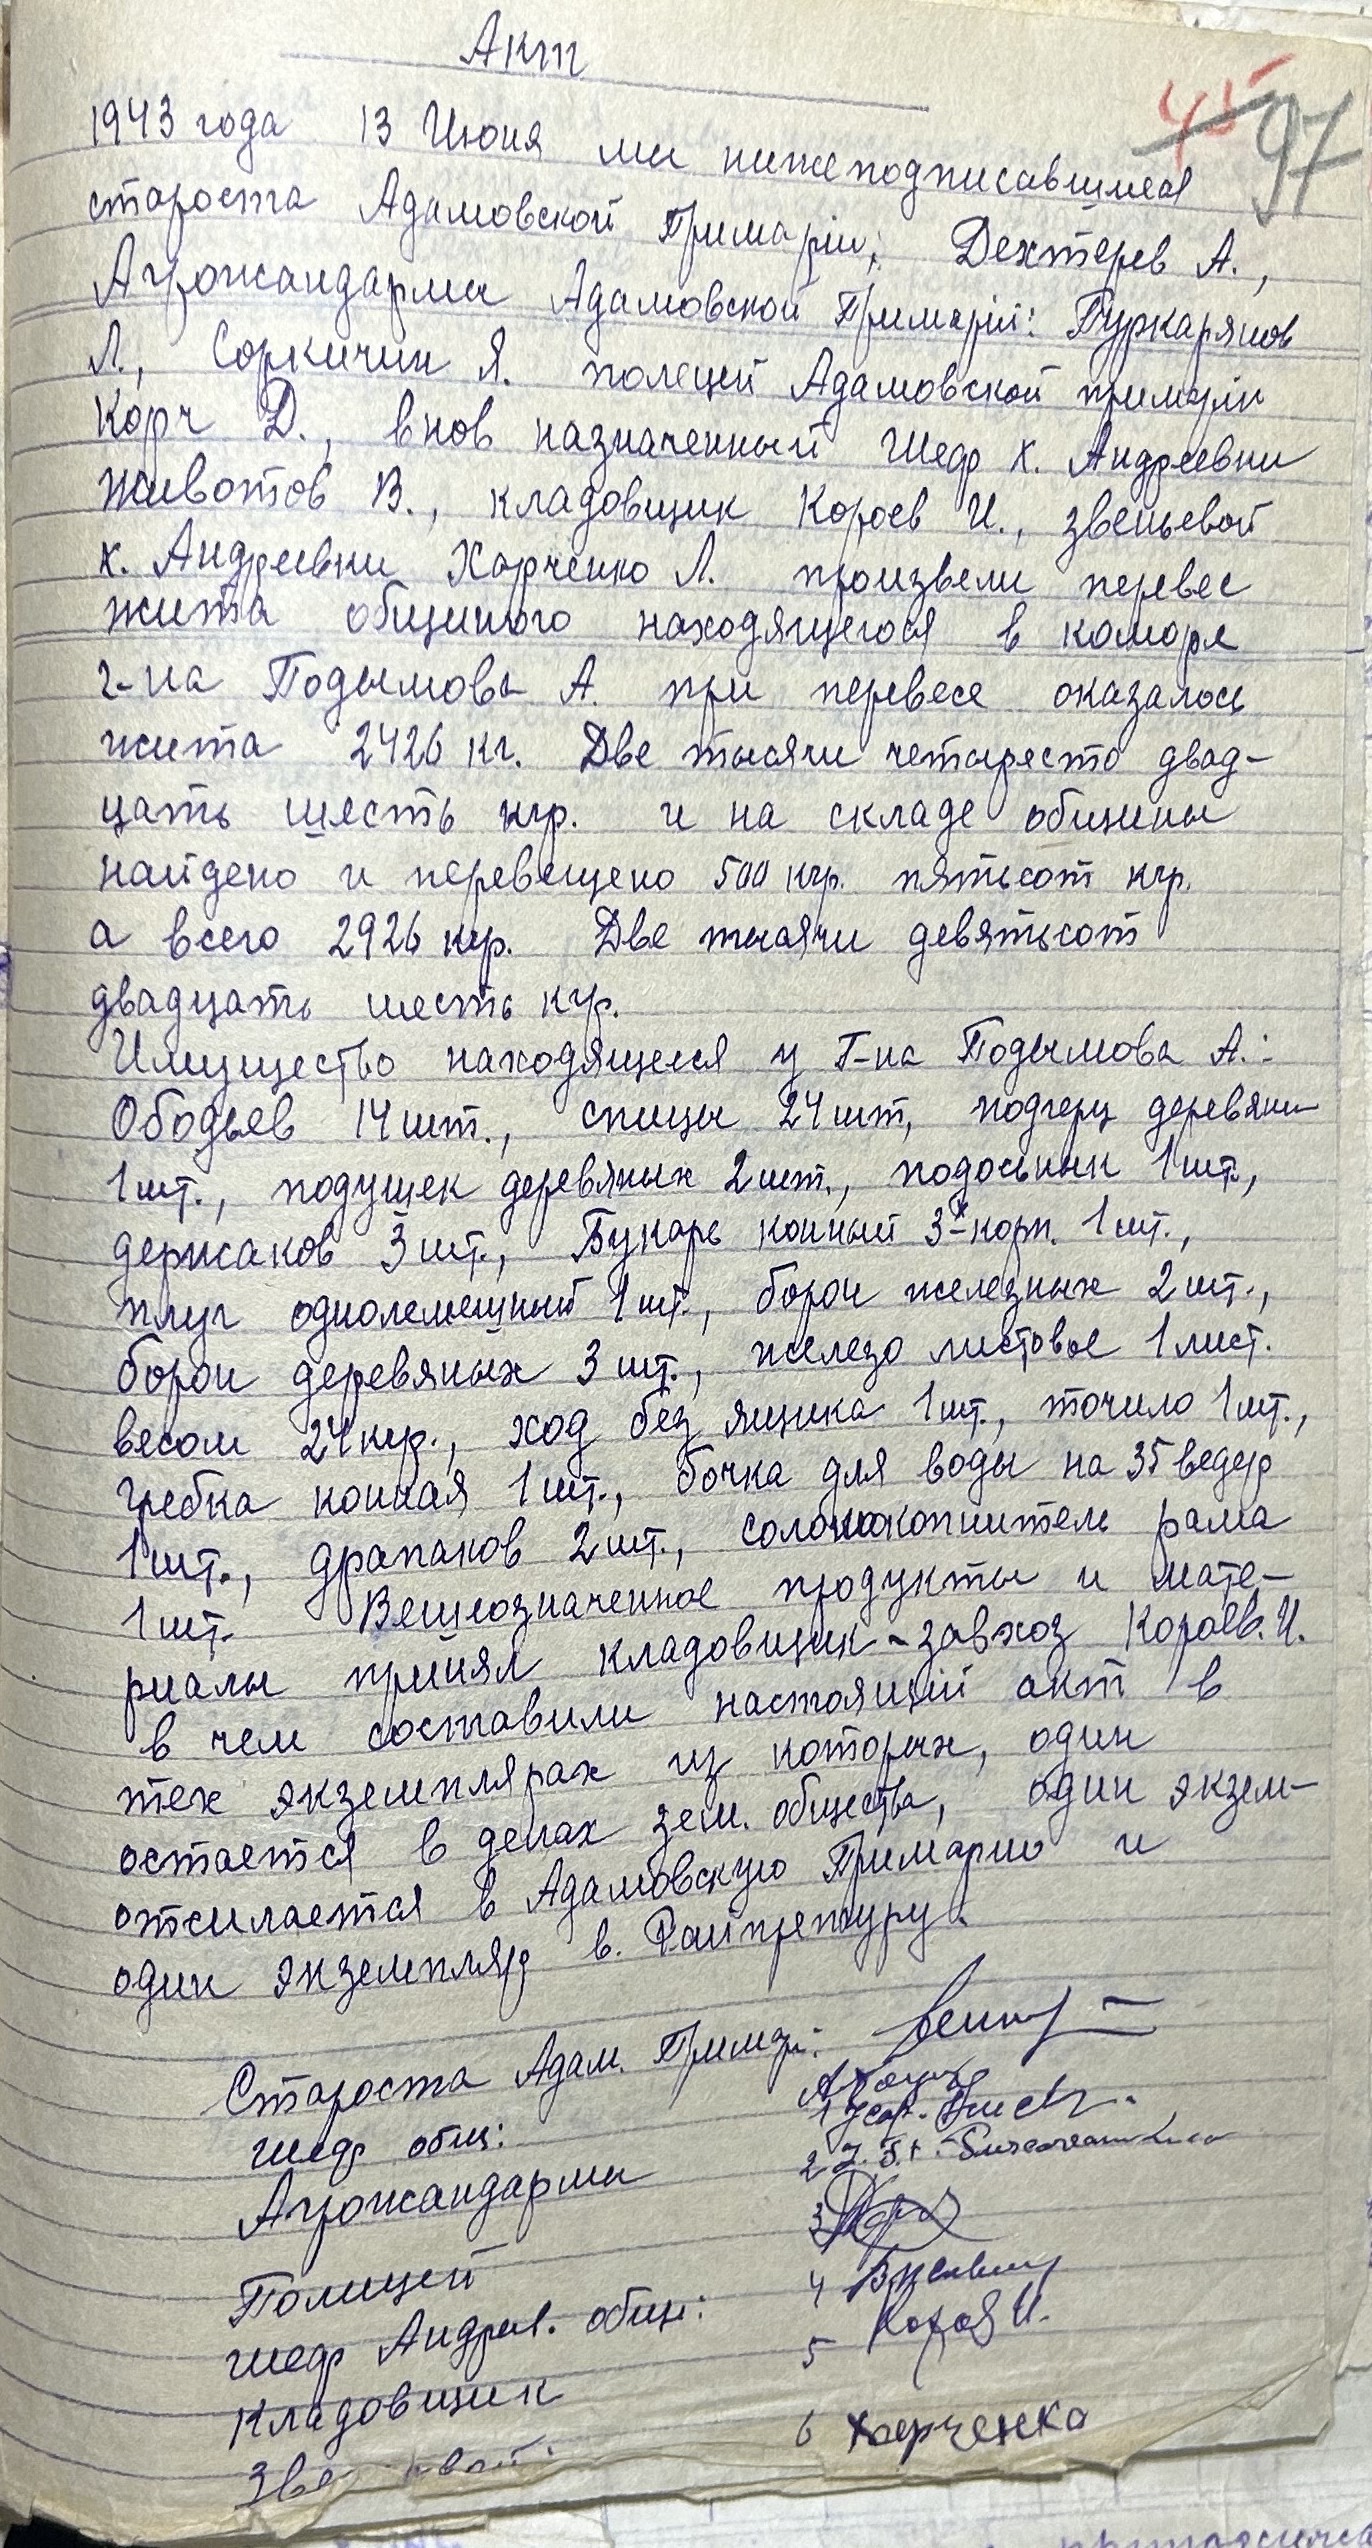 Акт
45 97
1943 года 13 Июня ми нижеподписавшиеся
староста Адамовской Примарiи; Дехтерев А.,
Агрожандарми Адамовской Примарiи: Буркарянов
Л., Соркичин Я. полецей Адамовской примарiи
Корч Д., вновь назначенный Шеф х. Андреевки
Животов В., кладовщик Короев И., звеньевой
х. Андреевки Харченко Л. произвели перевес
жита общиного находящегося в каморе
г-на Подымова А. при перевесе оказалось
жита 2426 кг. Две тысячи четыресто двад-
цать шесть кгр. и на складе общины
найдено и перевещено 500 кгр. пятьсот кгр.
а всего 2926 кгр. Две тысячи девятьсот
двадцать шесть кгр.
Имущество находящееся у Г-на Подымова А.:
Ободьев 14 шт., спицы 24 шт, подгерц деревяни
1 шт., подушек деревяных 2 шт., подосьник 1 шт.,
держаков 3 шт., Букарь конный 3-х корп. 1 шт.,
плуг однолемешный 1 шт., борон железных 2 шт.,
борон деревяных 3 шт., железо листовое 1 лист.
весом 24 кгр., ход без ящика 1 шт., точило 1 шт.,
гребка конная 1 шт., бочка для воды на 35 ведер
1 шт., драпаков 2 шт., соломокопнитель рама
1 шт. Вешеозначенное продукты и мате-
риалы принял кладовщик-завхоз Короев. И.
в чем составили настоящiй акт в
трех экземплярах из которых, один
остается в делах зем. общества, один экзем-
отсилается в Адамовскую Примарию и
один экземпляр в. Райпретуру.
Староста Адам. Примарi:
Шеф общ:
Агрожандарми 1
2
Полицей 3
Шеф Андреев. общ: 4
Кладовщик 5 Короев И.
6 Харченко